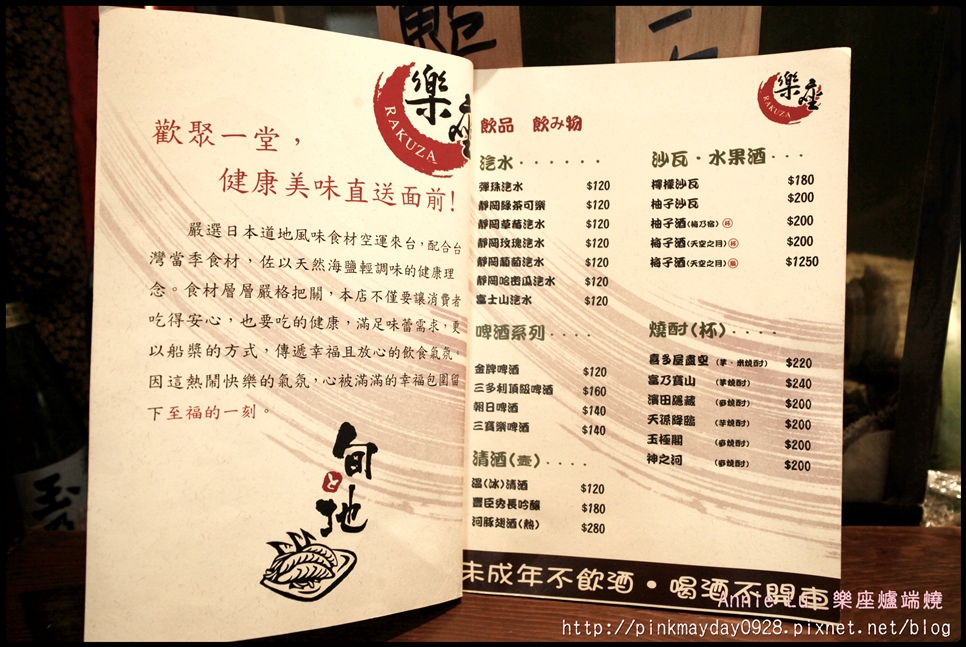 樂座
RAKUZA
歡聚一堂，
健康美味直送面前！
嚴選日本道地風味食材空運來台，配合台
灣當季食材，佐以天然海鹽輕調味的健康理
念。食材層層嚴格把關，本店不僅要讓消費者
吃得安心，也要吃的健康，滿足味蕾需求，更
以船槳的方式，傳遞幸福且放心的飲食氣氛。
因這熱鬧快樂的氣氛，心被滿滿的幸福包圍留
下至福的一刻。
旬
と
地
樂座
RAKUZA
飲品 飲み物
汽水．．．．．．
彈珠汽水 $120
靜岡綠茶可樂 $120
靜岡草莓汽水 $120
靜岡玫瑰汽水 $120
靜岡葡萄汽水 $120
靜岡哈密瓜汽水 $120
富士山汽水 $120
啤酒系列．．．．
金牌啤酒 $120
三多利頂級啤酒 $160
朝日啤酒 $140
三寶樂啤酒 $140
清酒(壺)．．．．
溫(冰)清酒 $120
豐臣秀長吟釀 $180
河豚翅酒(熱) $280
沙瓦．水果酒．．．
檸檬沙瓦 $180
柚子沙瓦 $200
柚子酒(梅乃宿)杯 $200
梅子酒(天空之月)杯 $200
梅子酒(天空之月)瓶 $1250
燒酎(杯)．．．．
喜多屋虛空 (芋．米燒酎) $220
富乃寶山 (芋燒酎) $240
濱田隱藏 (麥燒酎) $200
天孫降臨 (芋燒酎) $200
玉極閣 (麥燒酎) $200
神之河 (麥燒酎) $200
未成年不飲酒．喝酒不開車
樂座爐端燒
http://pinkmayday0928.pixnet.net/blog